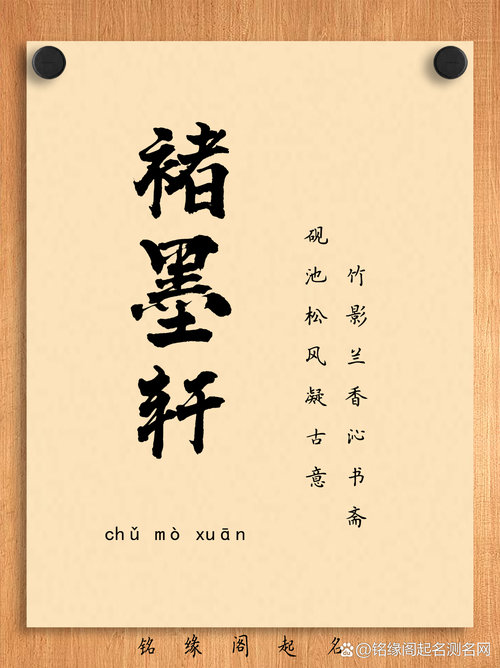 褚墨轩
chǔ mò xuān
竹影兰香沁书斋
砚池松风凝古意
铭缘阁起名
@铭缘阁起名测名网